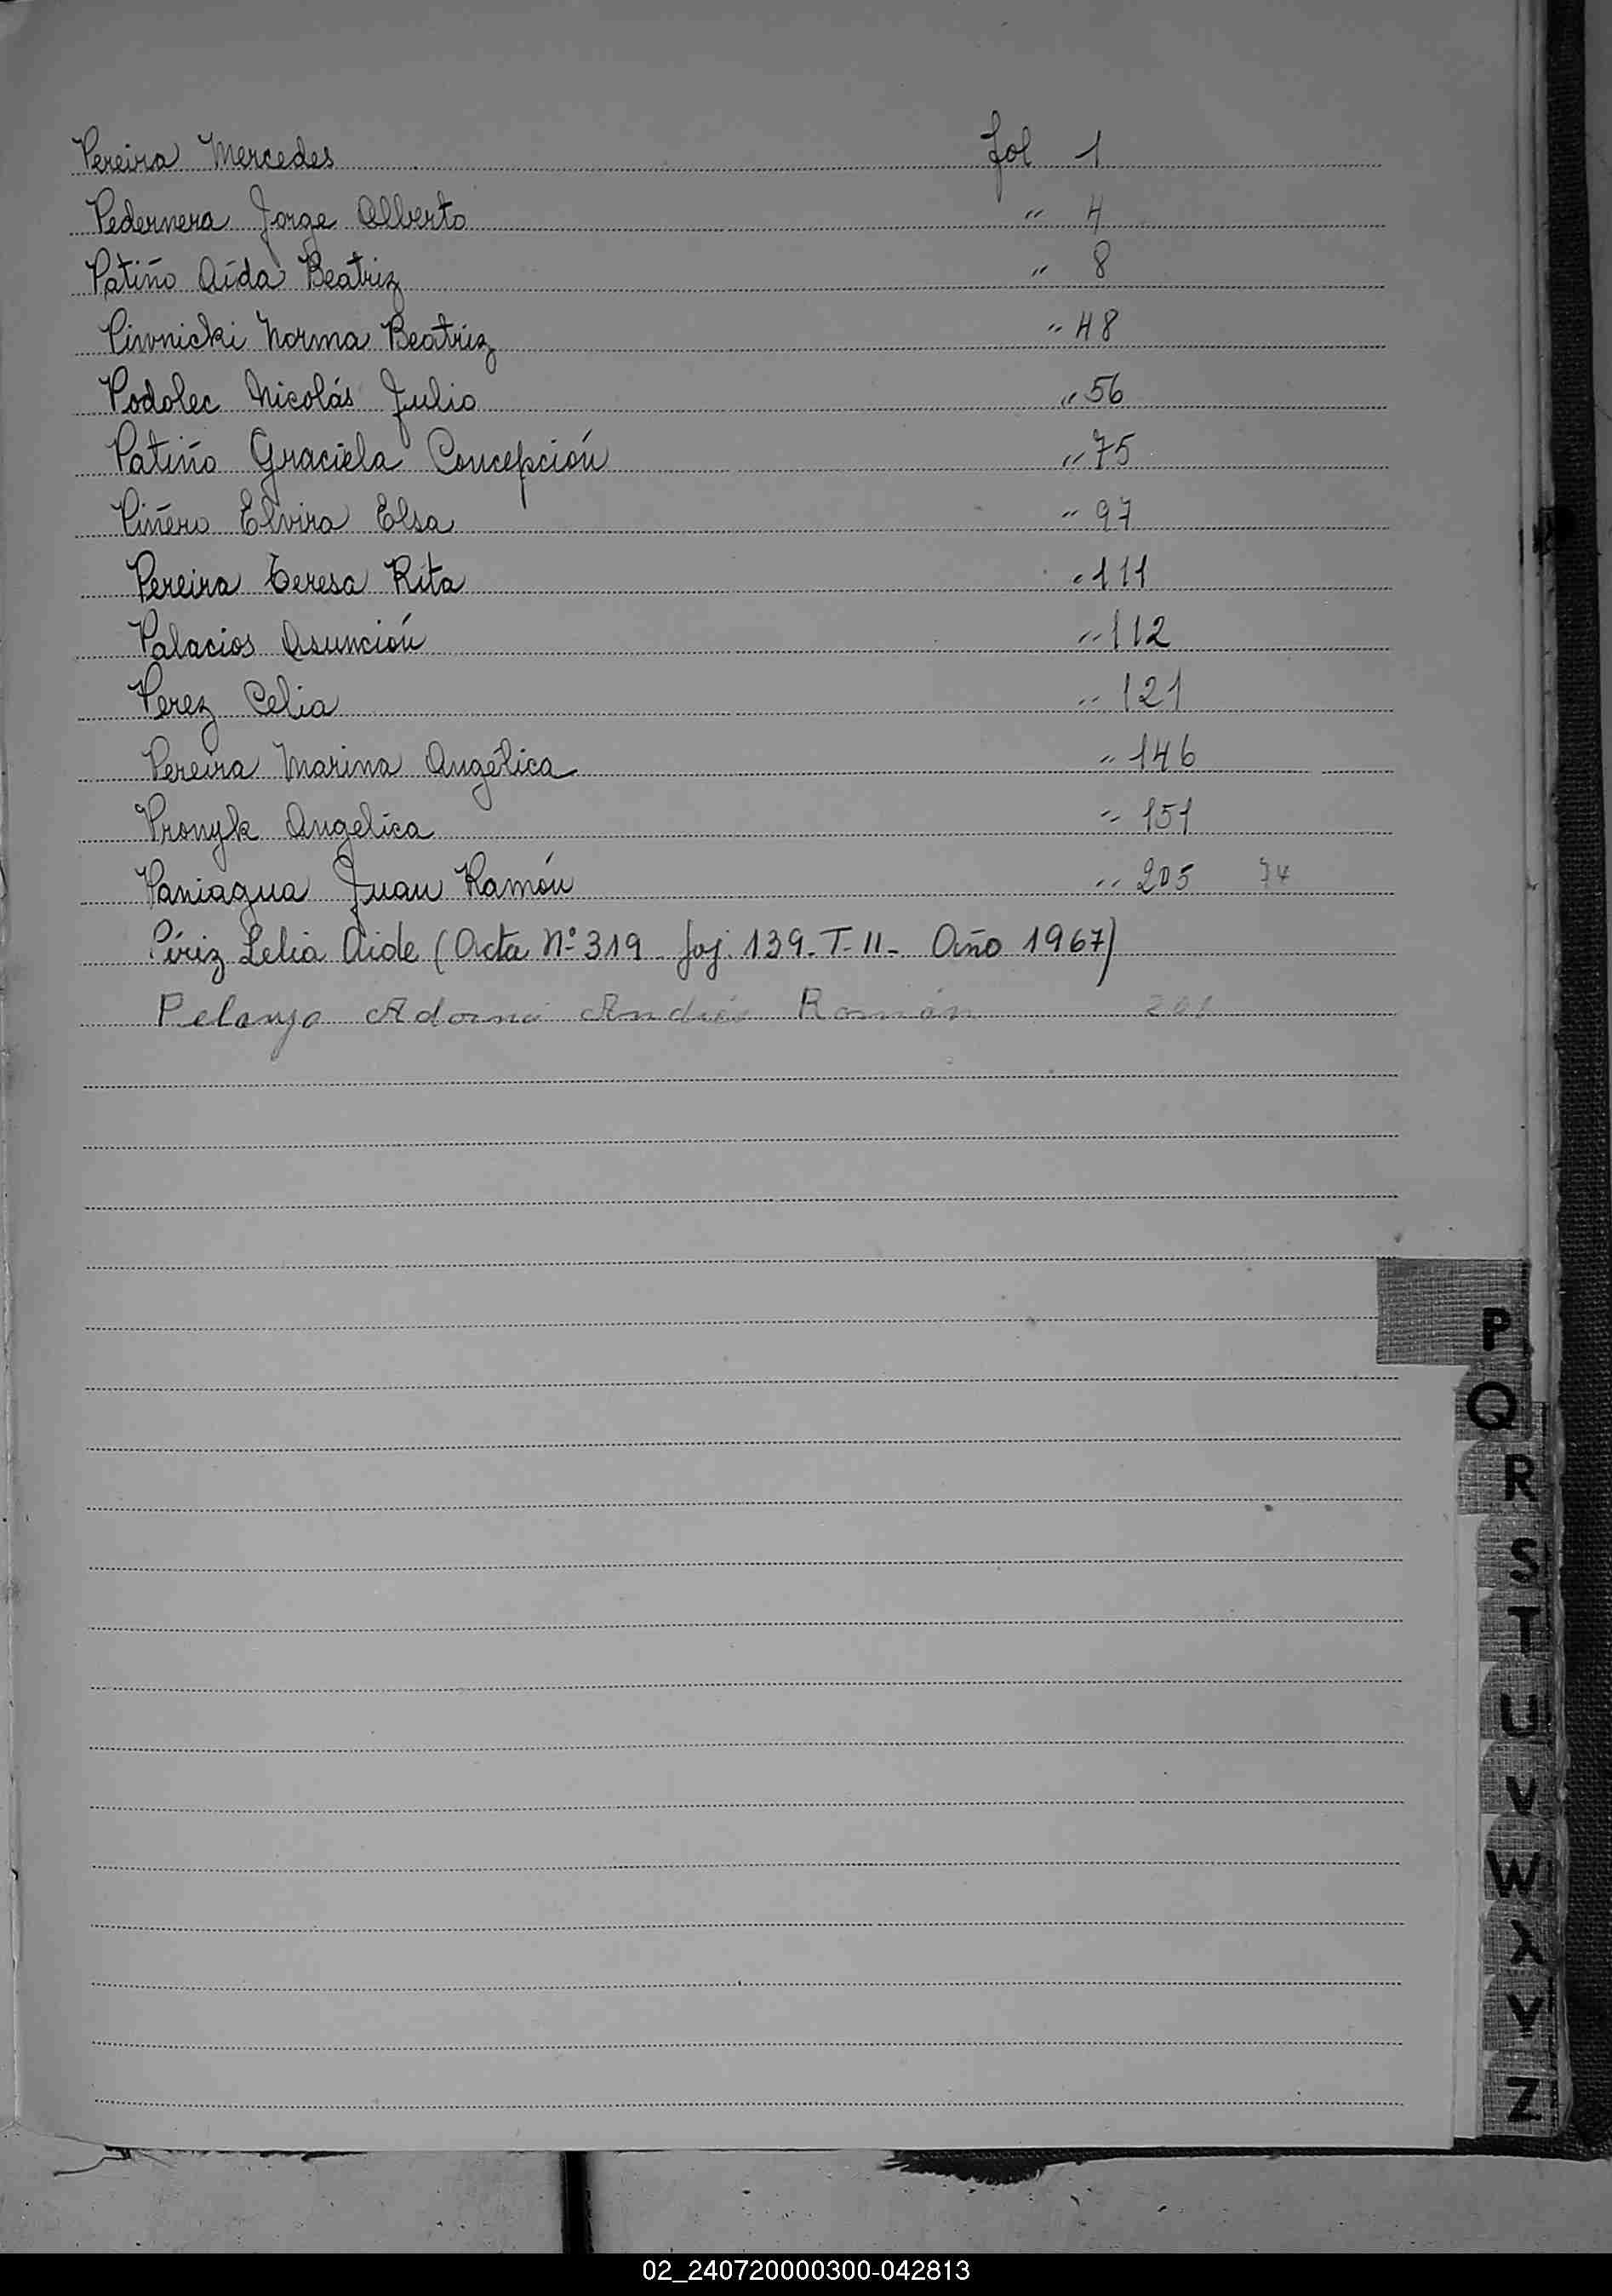 Pereira Mercedes fol 1
Pedernera Jorge Alberto " 4
Patiño Aída Beatriz " 8
Piwnicki Norma Beatriz " 48
Podolec Nicolás Julio " 56
Patiño Graciela Concepción " 75
Piñero Elvira Elsa " 97
Pereira Teresa Rita " 111
Palacios Asunción " 112
Perez Celia " 121
Pereira Marina Angélica " 146
Pronyk Angelica " 151
Paniagua Juan Ramón " 205 74
Píriz Lelia Aide (Acta Nº 319 foj. 139. T-II- Año 1967)
Andrés Román
P
Q
R
S
T
U
V
W
X
Y
Z
02_240720000300-042813